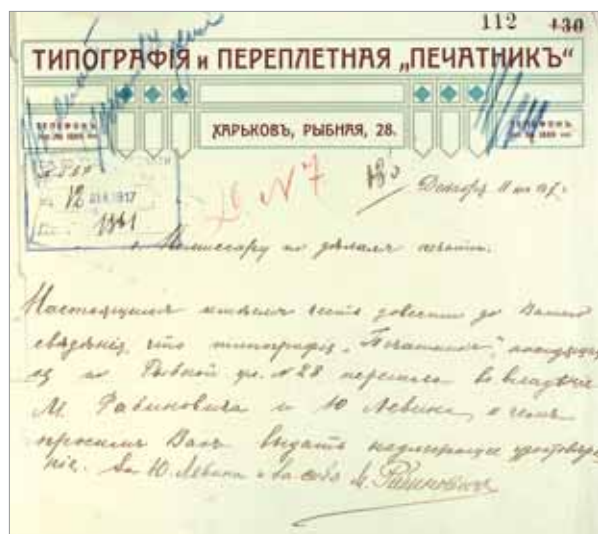 112 130
ТИПОГРАФІЯ и ПЕРЕПЛЕТНАЯ „ПЕЧАТНИКЪ“
ТЕЛЕФОНЪ ТЕЛЕФОНЪ
ХАРЬКОВЪ, РЫБНАЯ, 28.
12 1917
1341
№ 7
Декабря 11 дня 1917 г.
Комиссару по дѣламъ печати.
Настоящимъ имѣемъ честь довести до Вашего
свѣдѣнія, что типографія „Печатникъ“, находящая
ся по Рыбной ул. № 28 перешла во владѣніе
М. Рабиновича и Ю Левина, о чемъ
просимъ Васъ выдать надлежащее удостовѣре
ніе. За Ю. Левина и за себя М. Рабиновичъ